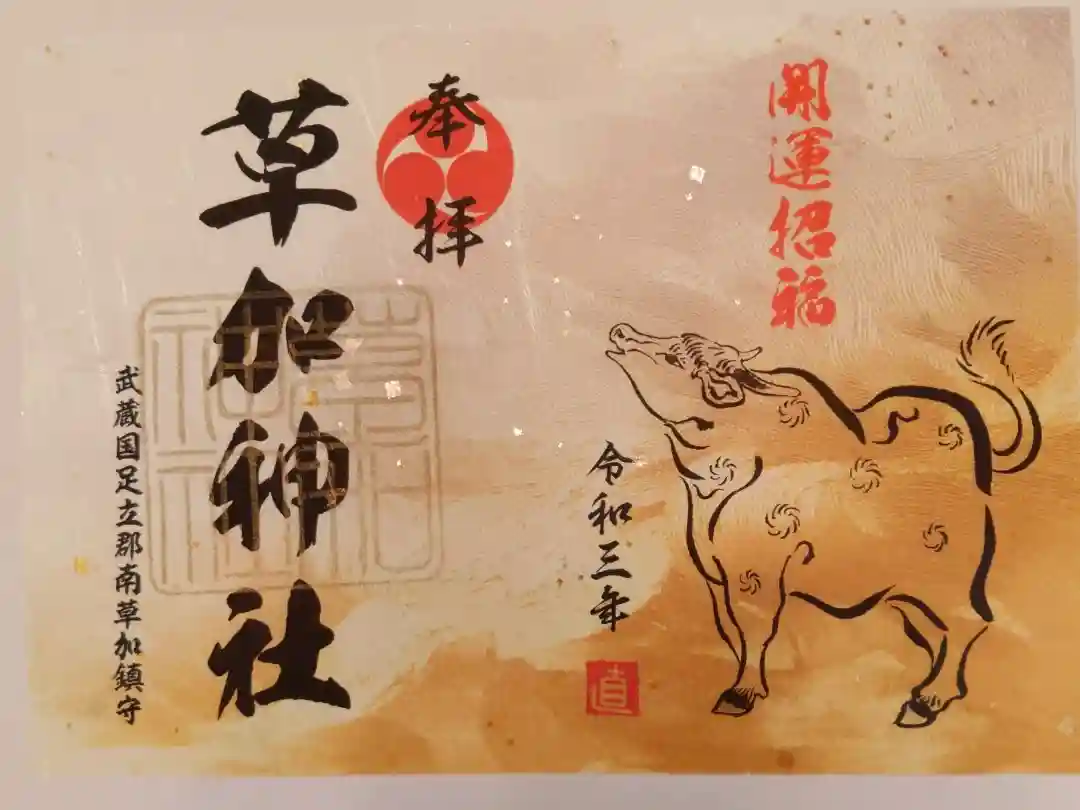 開運招福
令和三年
直
奉拝
草加神社
草加神社
武蔵国足立郡南草加鎮守